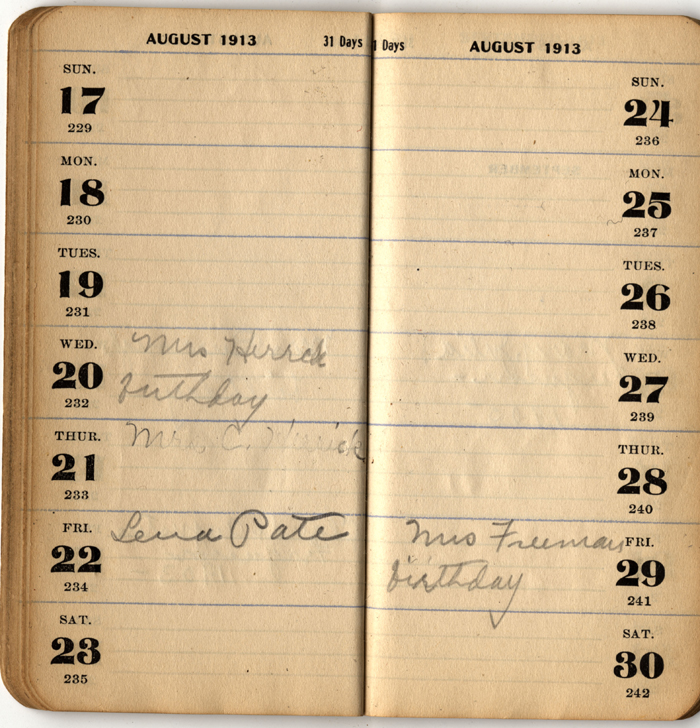 AUGUST 1913 31 Days
SUN.
17
229
MON.
18
230
TUES.
19
231
WED.
20
232
Mrs Herrick
birthday
THUR.
21
233
Mrs. C.
FRI.
22
234
Lena Pate
SAT.
23
235
1 Days AUGUST 1913
SUN.
24
236
MON.
25
237
TUES.
26
238
WED.
27
239
THUR.
28
240
FRI.
29
241
Mrs Freeman
birthday
SAT.
30
242